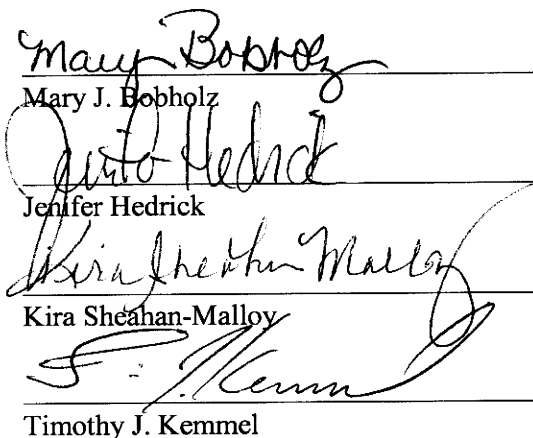 Mary Bobholz
Mary J. Bobholz
Jenifer Hedrick
Jenifer Hedrick
Kira Sheahan Malloy
Kira Sheahan-Malloy
T. J. Kemmel
Timothy J. Kemmel